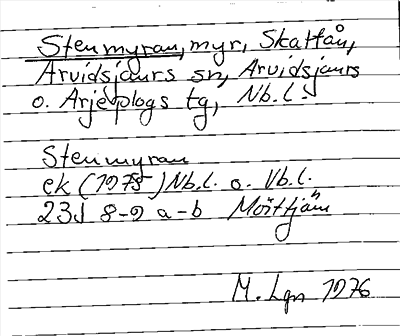 Stenmyran, myr, Skattån,
Arvidsjaurs sn, Arvidsjaurs
o. Arjeplogs tg, Nb.l.
Stenmyran
ek (1975) Nb.l. o. Vb.l.
23J 8-9 a-b
M. Lgn 1976